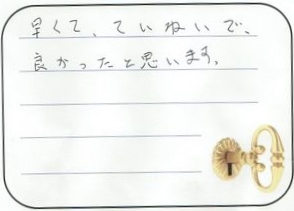 早くて、ていねいで、
良かったと思います。